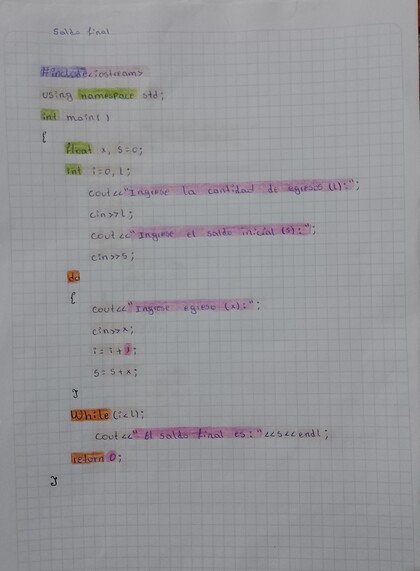 Saldo final
#include<iostream>
using namespace std;
int main()
{
float x, S=0;
int i=0, L;
cout<<"Ingrese la cantidad de egresos (L):";
cin>>L;
cout<<"Ingrese el saldo inicial (s):";
cin>>S;
do
{
cout<<"Ingrese egreso (x):";
cin>>x;
i=i+1;
S=S+x;
}
While(i<L);
cout<<"El saldo final es:"<<S<<endl;
return 0;
}